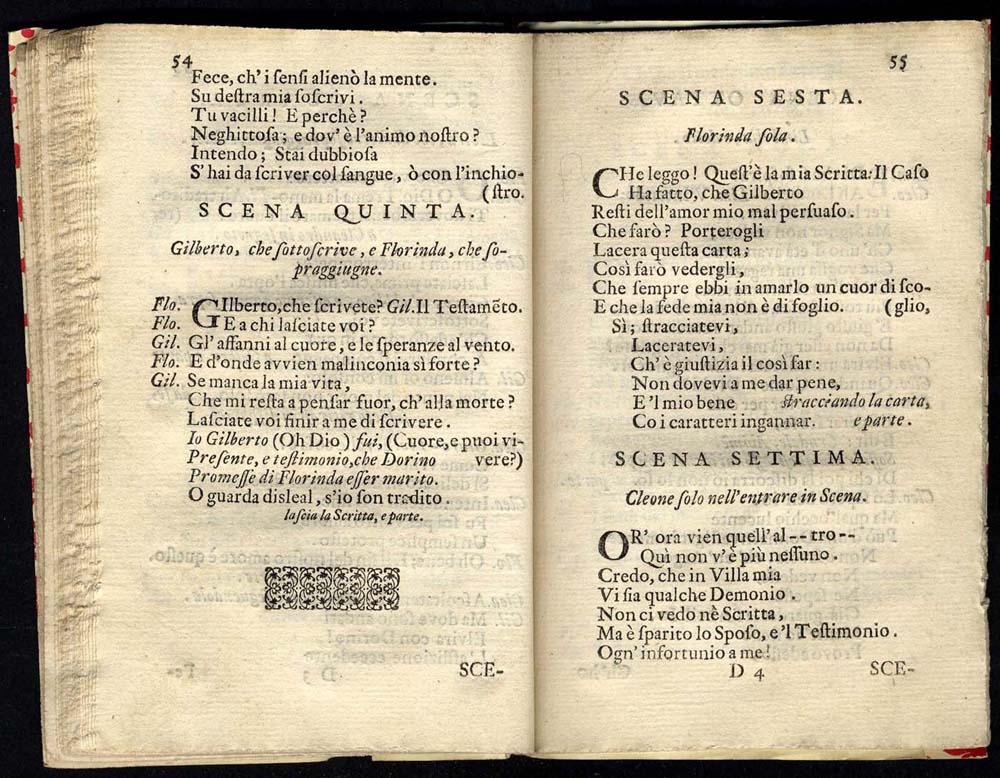 54
Fece, ch' i ſenſi alienò la mente.
Su deſtra mia ſoſcrivi.
Tu vacilli! E perchè?
Neghittoſa; e dov' è l'animo noſtro?
Intendo; Stai dubbioſa
S' hai da ſcriver col ſangue, ò con l'inchio-
(ſtro.
SCENA QUINTA.
Gilberto, che ſottoſcrive, e Florinda, che ſo-
praggiugne.
Flo. GIlberto, che ſcrivete? Gil. Il Teſtamẽto.
Flo. E a chi laſciate voi?
Gil. Gl' affanni al cuore; e le ſperanze al vento.
Flo. E d'onde avvien malinconia sì forte?
Gil. Se manca la mia vita,
Che mi reſta a penſar fuor, ch' alla morte?
Laſciate voi finir a me di ſcrivere.
Io Gilberto (Oh Dio) fui, (Cuore, e puoi vi-
Preſente, e teſtimonio, che Dorino vere?)
Promeſſe di Florinda eſſer marito.
O guarda disleal, s'io ſon tradito.
laſcia la Scritta, e parte.
SCE-
55
SCENA SESTA.
Florinda ſola.
CHe leggo! Queſt' è la mia Scritta: Il Caſo
Ha fatto, che Gilberto
Reſti dell'amor mio mal perſuaſo.
Che farò? Porterogli
Lacera queſta carta;
Così farò vedergli,
Che ſempre ebbi in amarlo un cuor di ſco-
E che la fede mia non è di foglio. (glio,
Sì; ſtracciatevi,
Laceratevi,
Ch' è giuſtizia il così far:
Non dovevi a me dar pene,
E 'l mio bene ſtracciando la carta,
Co i caratteri ingannar. e parte.
SCENA SETTIMA.
Cleone ſolo nell'entrare in Scena.
OR' ora vien quell' al--tro--
Quì non v' è più neſſuno.
Credo, che in Villa mia
Vi ſia qualche Demonio.
Non ci vedo nè Scritta,
Ma è ſparito lo Spoſo, e 'l Teſtimonio.
Ogn' infortunio a me!
D 4 SCE-